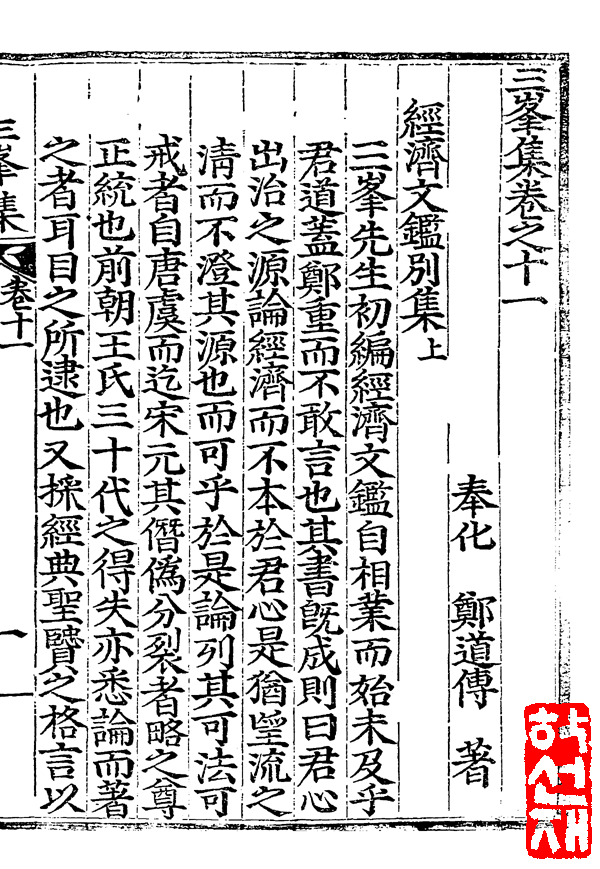 三峯集卷之十一
奉化 鄭道傳 著
經濟文鑑別集上
三峯先生初編經濟文鑑自相業而始未及乎
君道蓋鄭重而不敢言也其書旣成則曰君心
出治之源論經濟而不本於君心是猶望流之
淸而不澄其源也而可乎於是論列其可法可
戒者自唐虞而迄宋元其僭僞分裂者略之尊
正統也前朝王氏三十代之得失亦悉論而著
之者耳目之所逮也又採經典聖賢之格言以
三峯集 卷十一 一
학선재